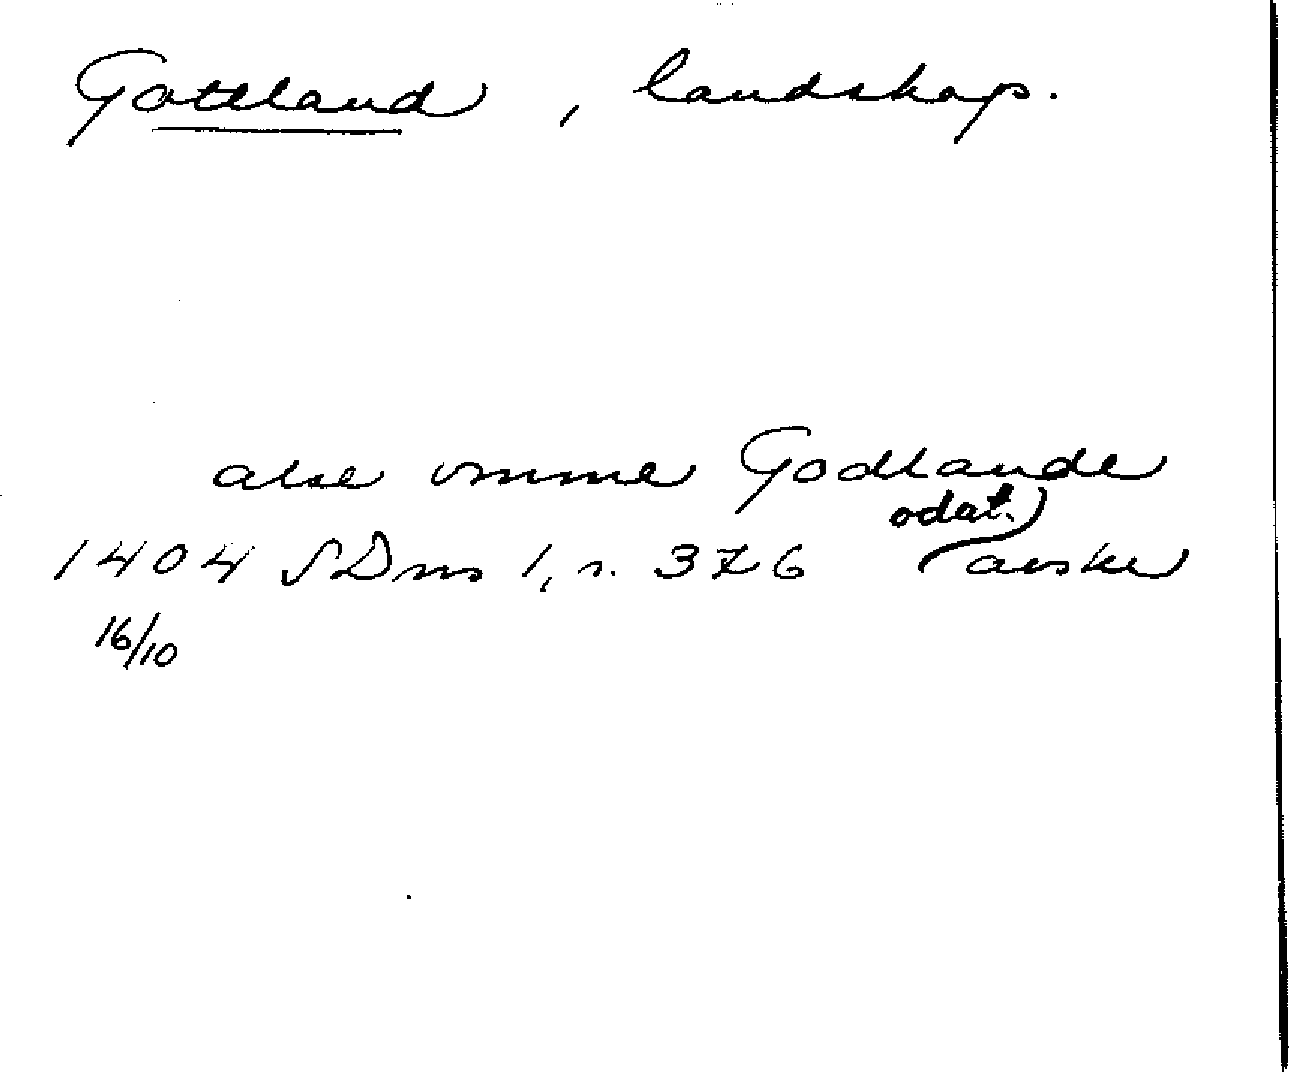 Gottland, landskap.
alse vmme Godlande
odat.)
1404 SDns 1, s. 376 avskr
16/10